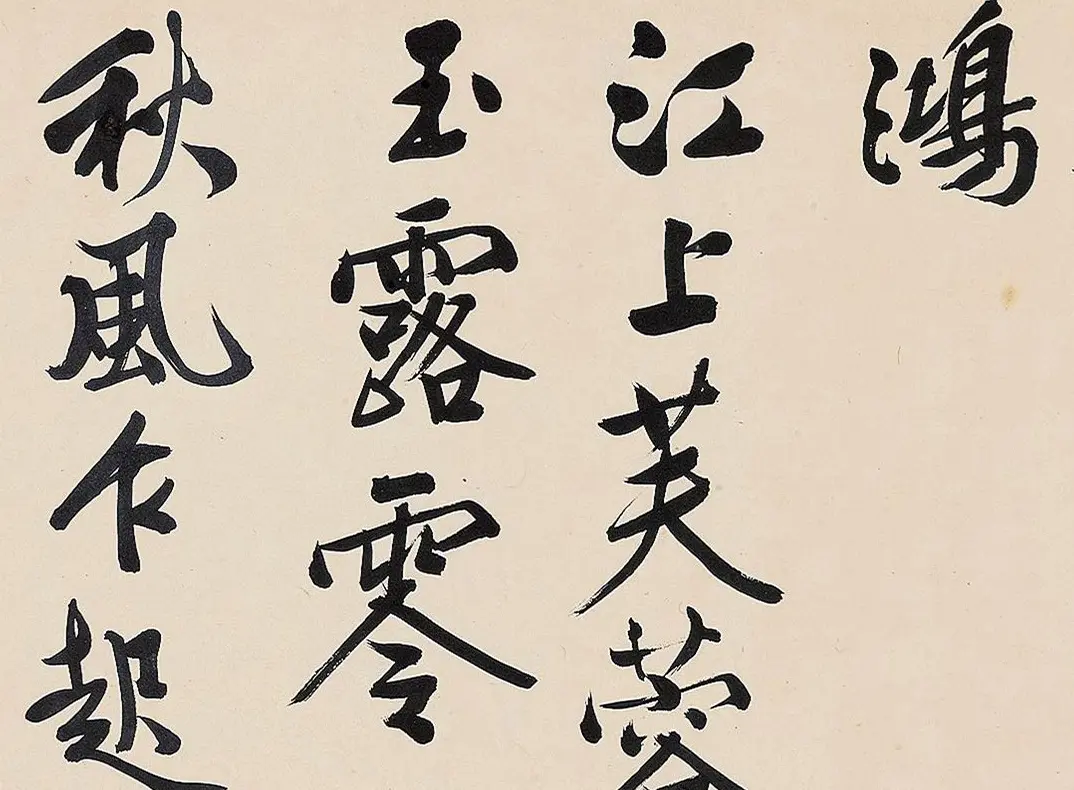 鴻
江上芙蓉
玉露零
秋風乍起